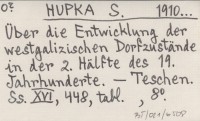 HUPKA S. 1910...
Über die Entwicklung der
westgalizischen Dorfzustände
in der 2. Hälfte des 19.
Jahrhunderte. — Teschen.
Ss. XVI, 448, tabl. , 8°.